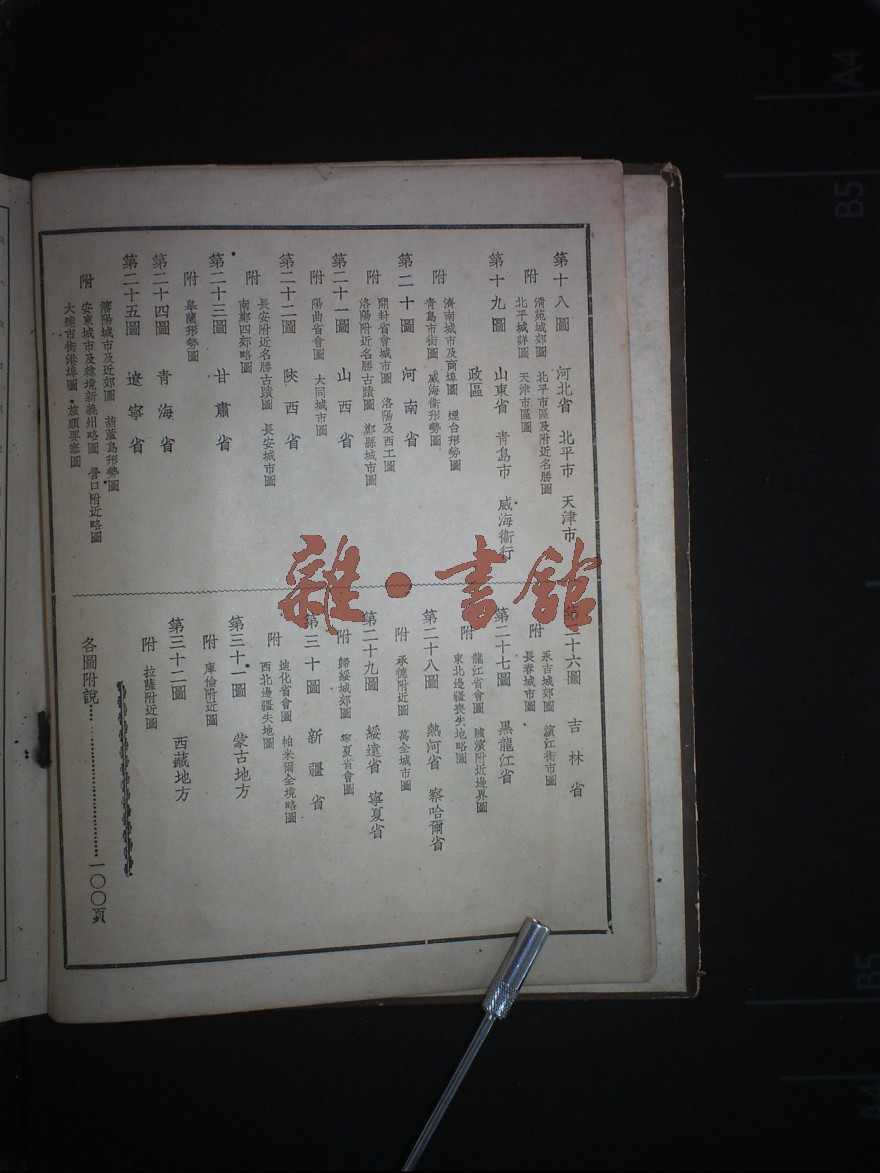 第十八圖 河北省 北平市 天津市
附 清苑城郊圖 北平市區及附近名勝圖
北平城詳圖 天津市區圖
第十九圖 山東省 青島市 威海衞行
政區
附 濟南城市及商埠圖 煙台形勢圖
青島市街圖 威海衞形勢圖
第二十圖 河南省
附 開封省會城市圖 洛陽及西工圖
洛陽附近名勝古蹟圖 鄭縣城市圖
第二十一圖 山西省
附 陽曲省會圖 大同城市圖
第二十二圖 陝西省
附 長安附近名勝古蹟圖 長安城市圖
南鄭四郊略圖
第二十三圖 甘肅省
附 皋蘭形勢圖
第二十四圖 青海省
第二十五圖 遼寧省
附 瀋陽城市及近郊圖 葫蘆島形勢圖
安東城市及韓境新義州略圖 營口附近略圖
大連市街港埠圖 旅順要塞圖
第二十六圖 吉林省
附 永吉城郊圖 濱江街市圖
長春城市圖
第二十七圖 黑龍江省
附 龍江省會圖 臚濱附近邊界圖
東北邊疆喪失地略圖
第二十八圖 熱河省 察哈爾省
附 承德附近圖 萬全城市圖
第二十九圖 綏遠省 寧夏省
附 歸綏城郊圖 寧夏省會圖
第三十圖 新疆省
附 迪化省會圖 帕米爾全境略圖
西北邊疆失地圖
第三十一圖 蒙古地方
附 庫倫附近圖
第三十二圖 西藏地方
附 拉薩附近圖
各圖附說……………………一〇〇頁
雜·書館
A4
B5
B5
A4